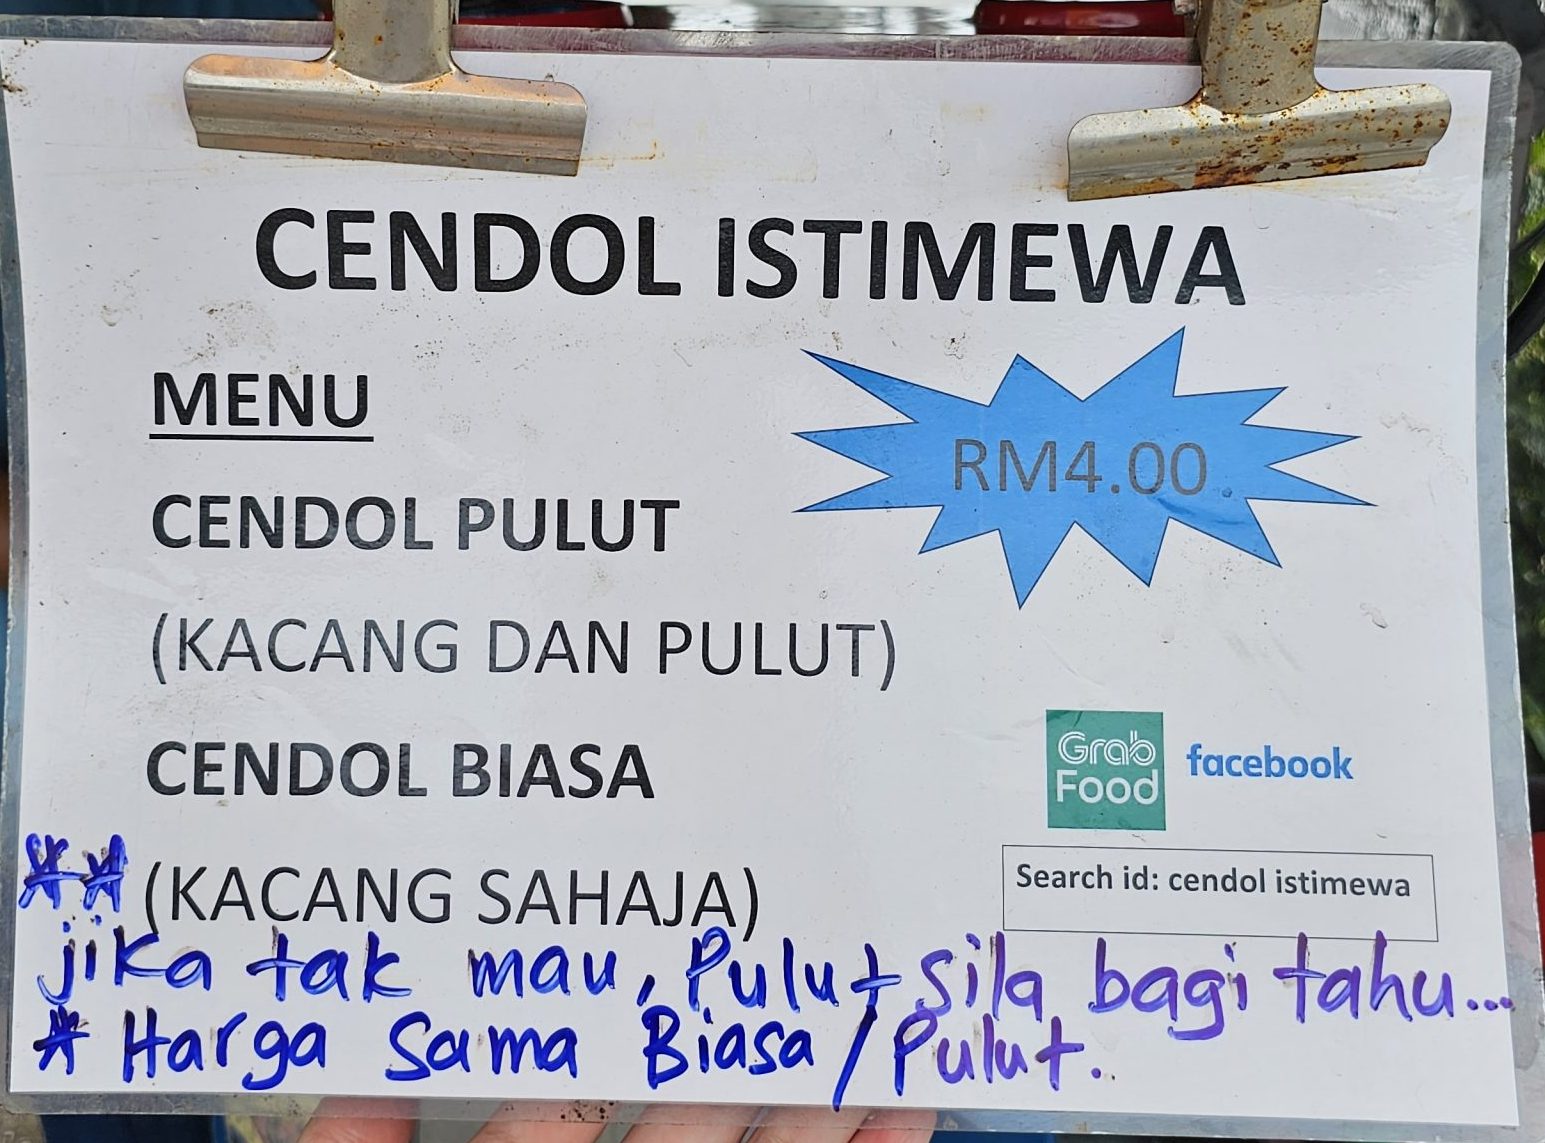 CENDOL ISTIMEWA
MENU
RM4.00
CENDOL PULUT
(KACANG DAN PULUT)
CENDOL BIASA
Grab
Food
facebook
** (KACANG SAHAJA)
Search id: cendol istimewa
jika tak mau, Pulut sila bagi tahu...
* Harga Sama Biasa / Pulut.